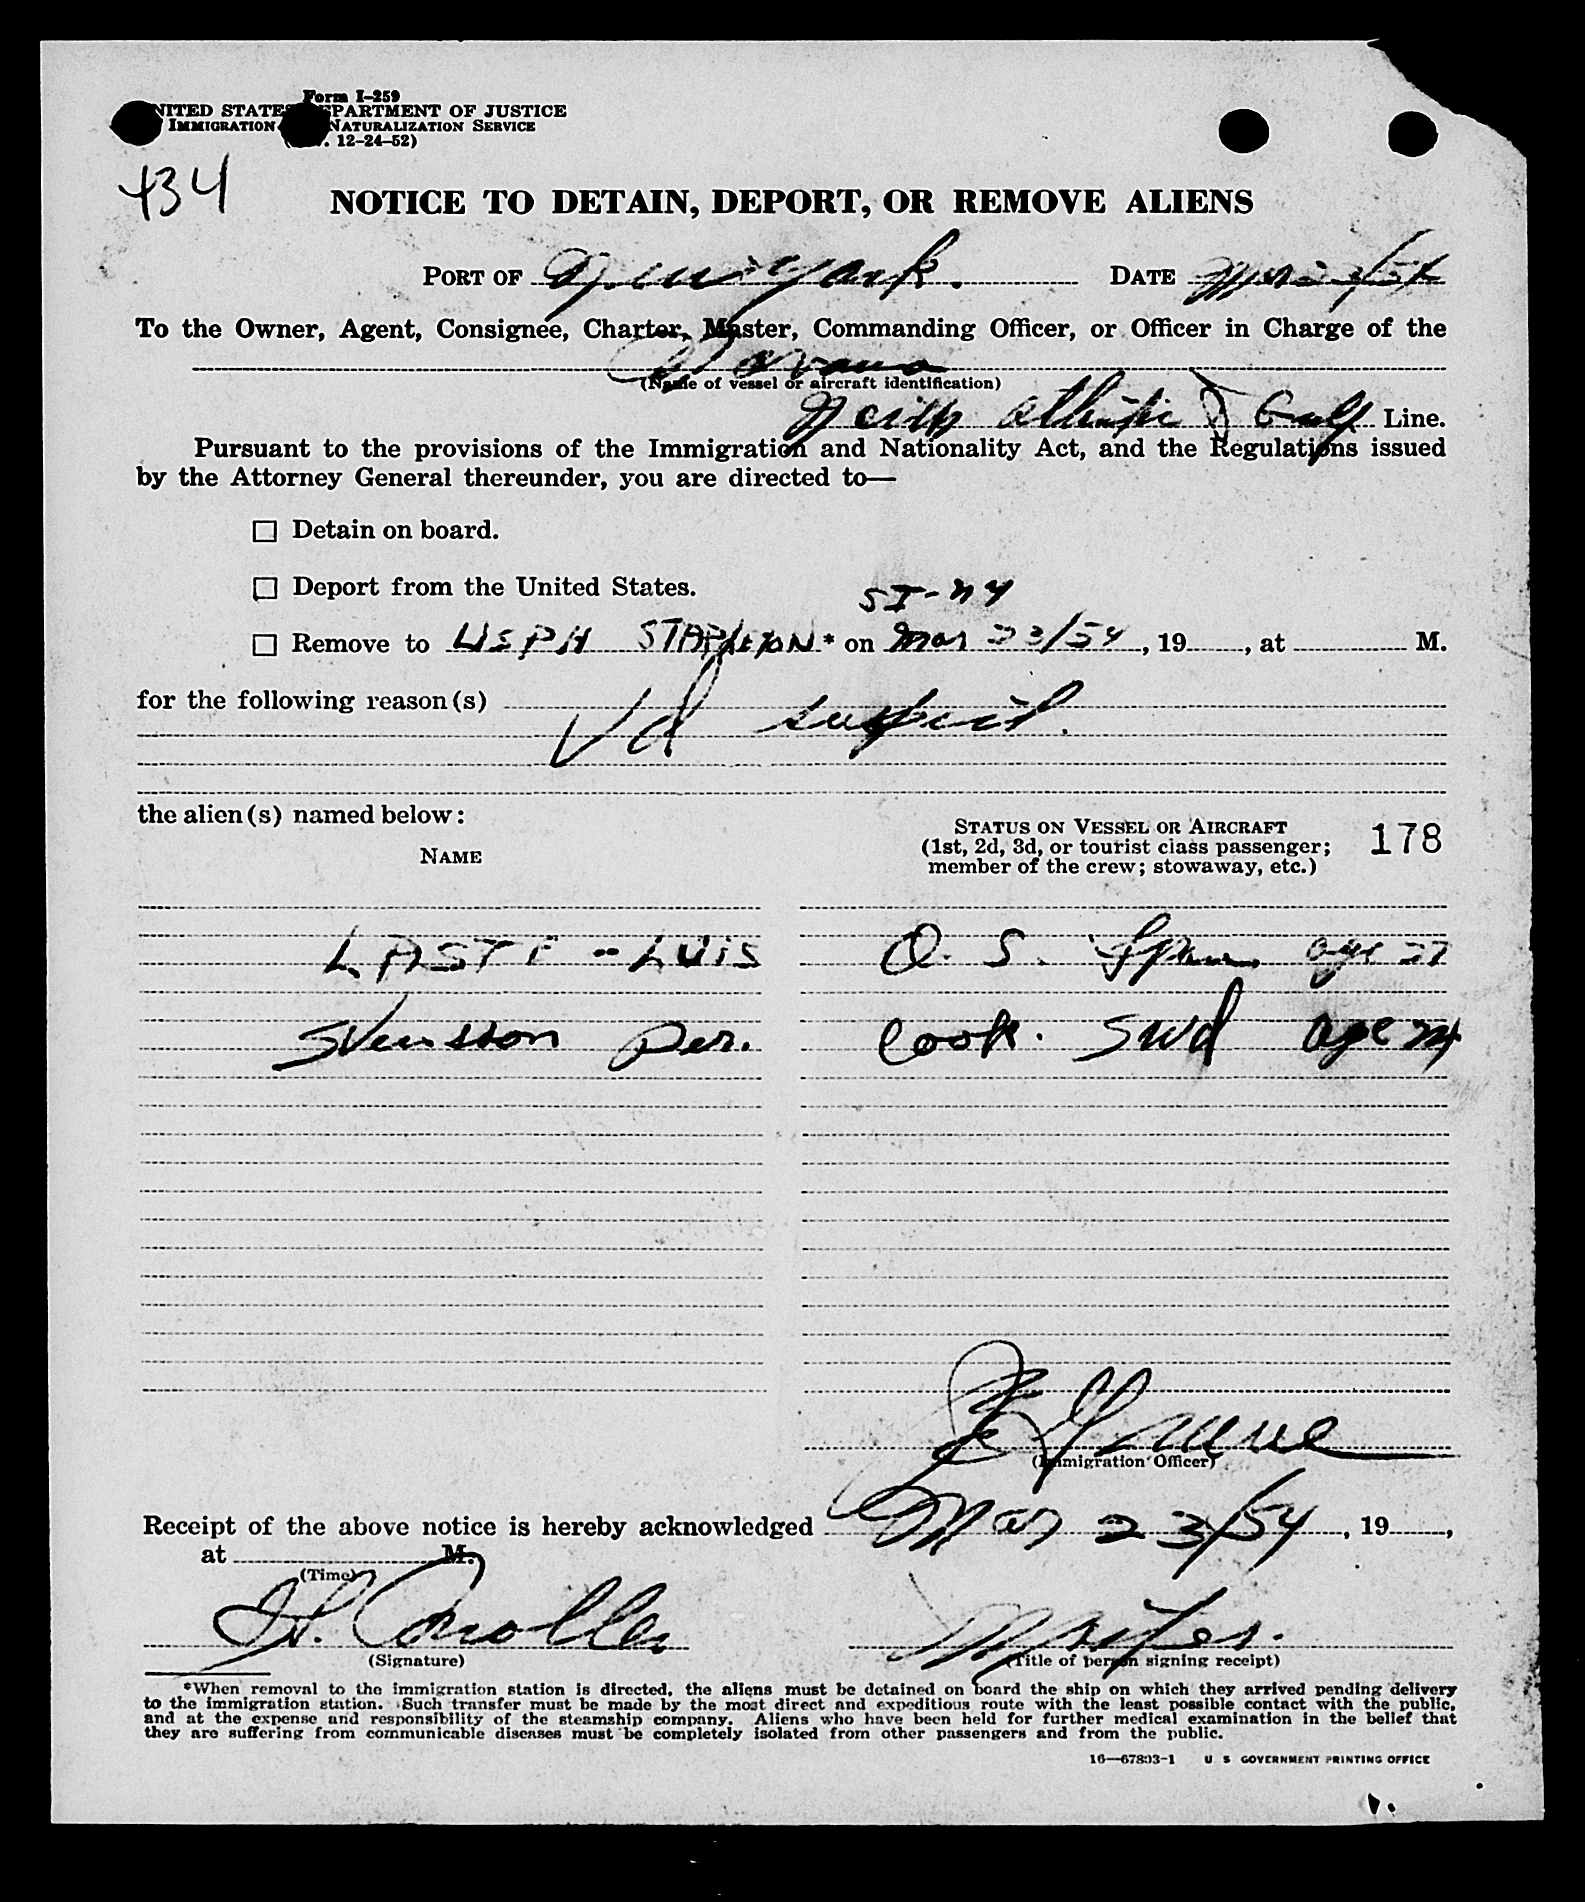 Form I-259
UNITED STATES DEPARTMENT OF JUSTICE
IMMIGRATION NATURALIZATION SERVICE
12-24-52)
434
NOTICE TO DETAIN, DEPORT, OR REMOVE ALIENS
PORT OF New York. DATE Mar 23/54
To the Owner, Agent, Consignee, Charter, Master, Commanding Officer, or Officer in Charge of the
(Name of vessel or aircraft identification)
North Atlantic & Gulf Line.
Pursuant to the provisions of the Immigration and Nationality Act, and the Regulations issued
by the Attorney General thereunder, you are directed to—
☐ Detain on board.
☐ Deport from the United States.
SI-NY
☐ Remove to USPH STAPLETON* on Mar 23/54, 19, at M.
for the following reason(s)
Vd suspect.
the alien(s) named below:
STATUS ON VESSEL OR AIRCRAFT
(1st, 2d, 3d, or tourist class passenger;
member of the crew; stowaway, etc.)
178
NAME
LUIS O. S. Spain age 27
Svensson Per. Cook. Swd age 24
(Immigration Officer)
Receipt of the above notice is hereby acknowledged Mar 23/54, 19,
at M.
(Time)
Master.
(Signature) (Title of person signing receipt)
*When removal to the immigration station is directed, the aliens must be detained on board the ship on which they arrived pending delivery
to the immigration station. Such transfer must be made by the most direct and expeditious route with the least possible contact with the public,
and at the expense and responsibility of the steamship company. Aliens who have been held for further medical examination in the belief that
they are suffering from communicable diseases must be completely isolated from other passengers and from the public.
16—67893-1 U S GOVERNMENT PRINTING OFFICE